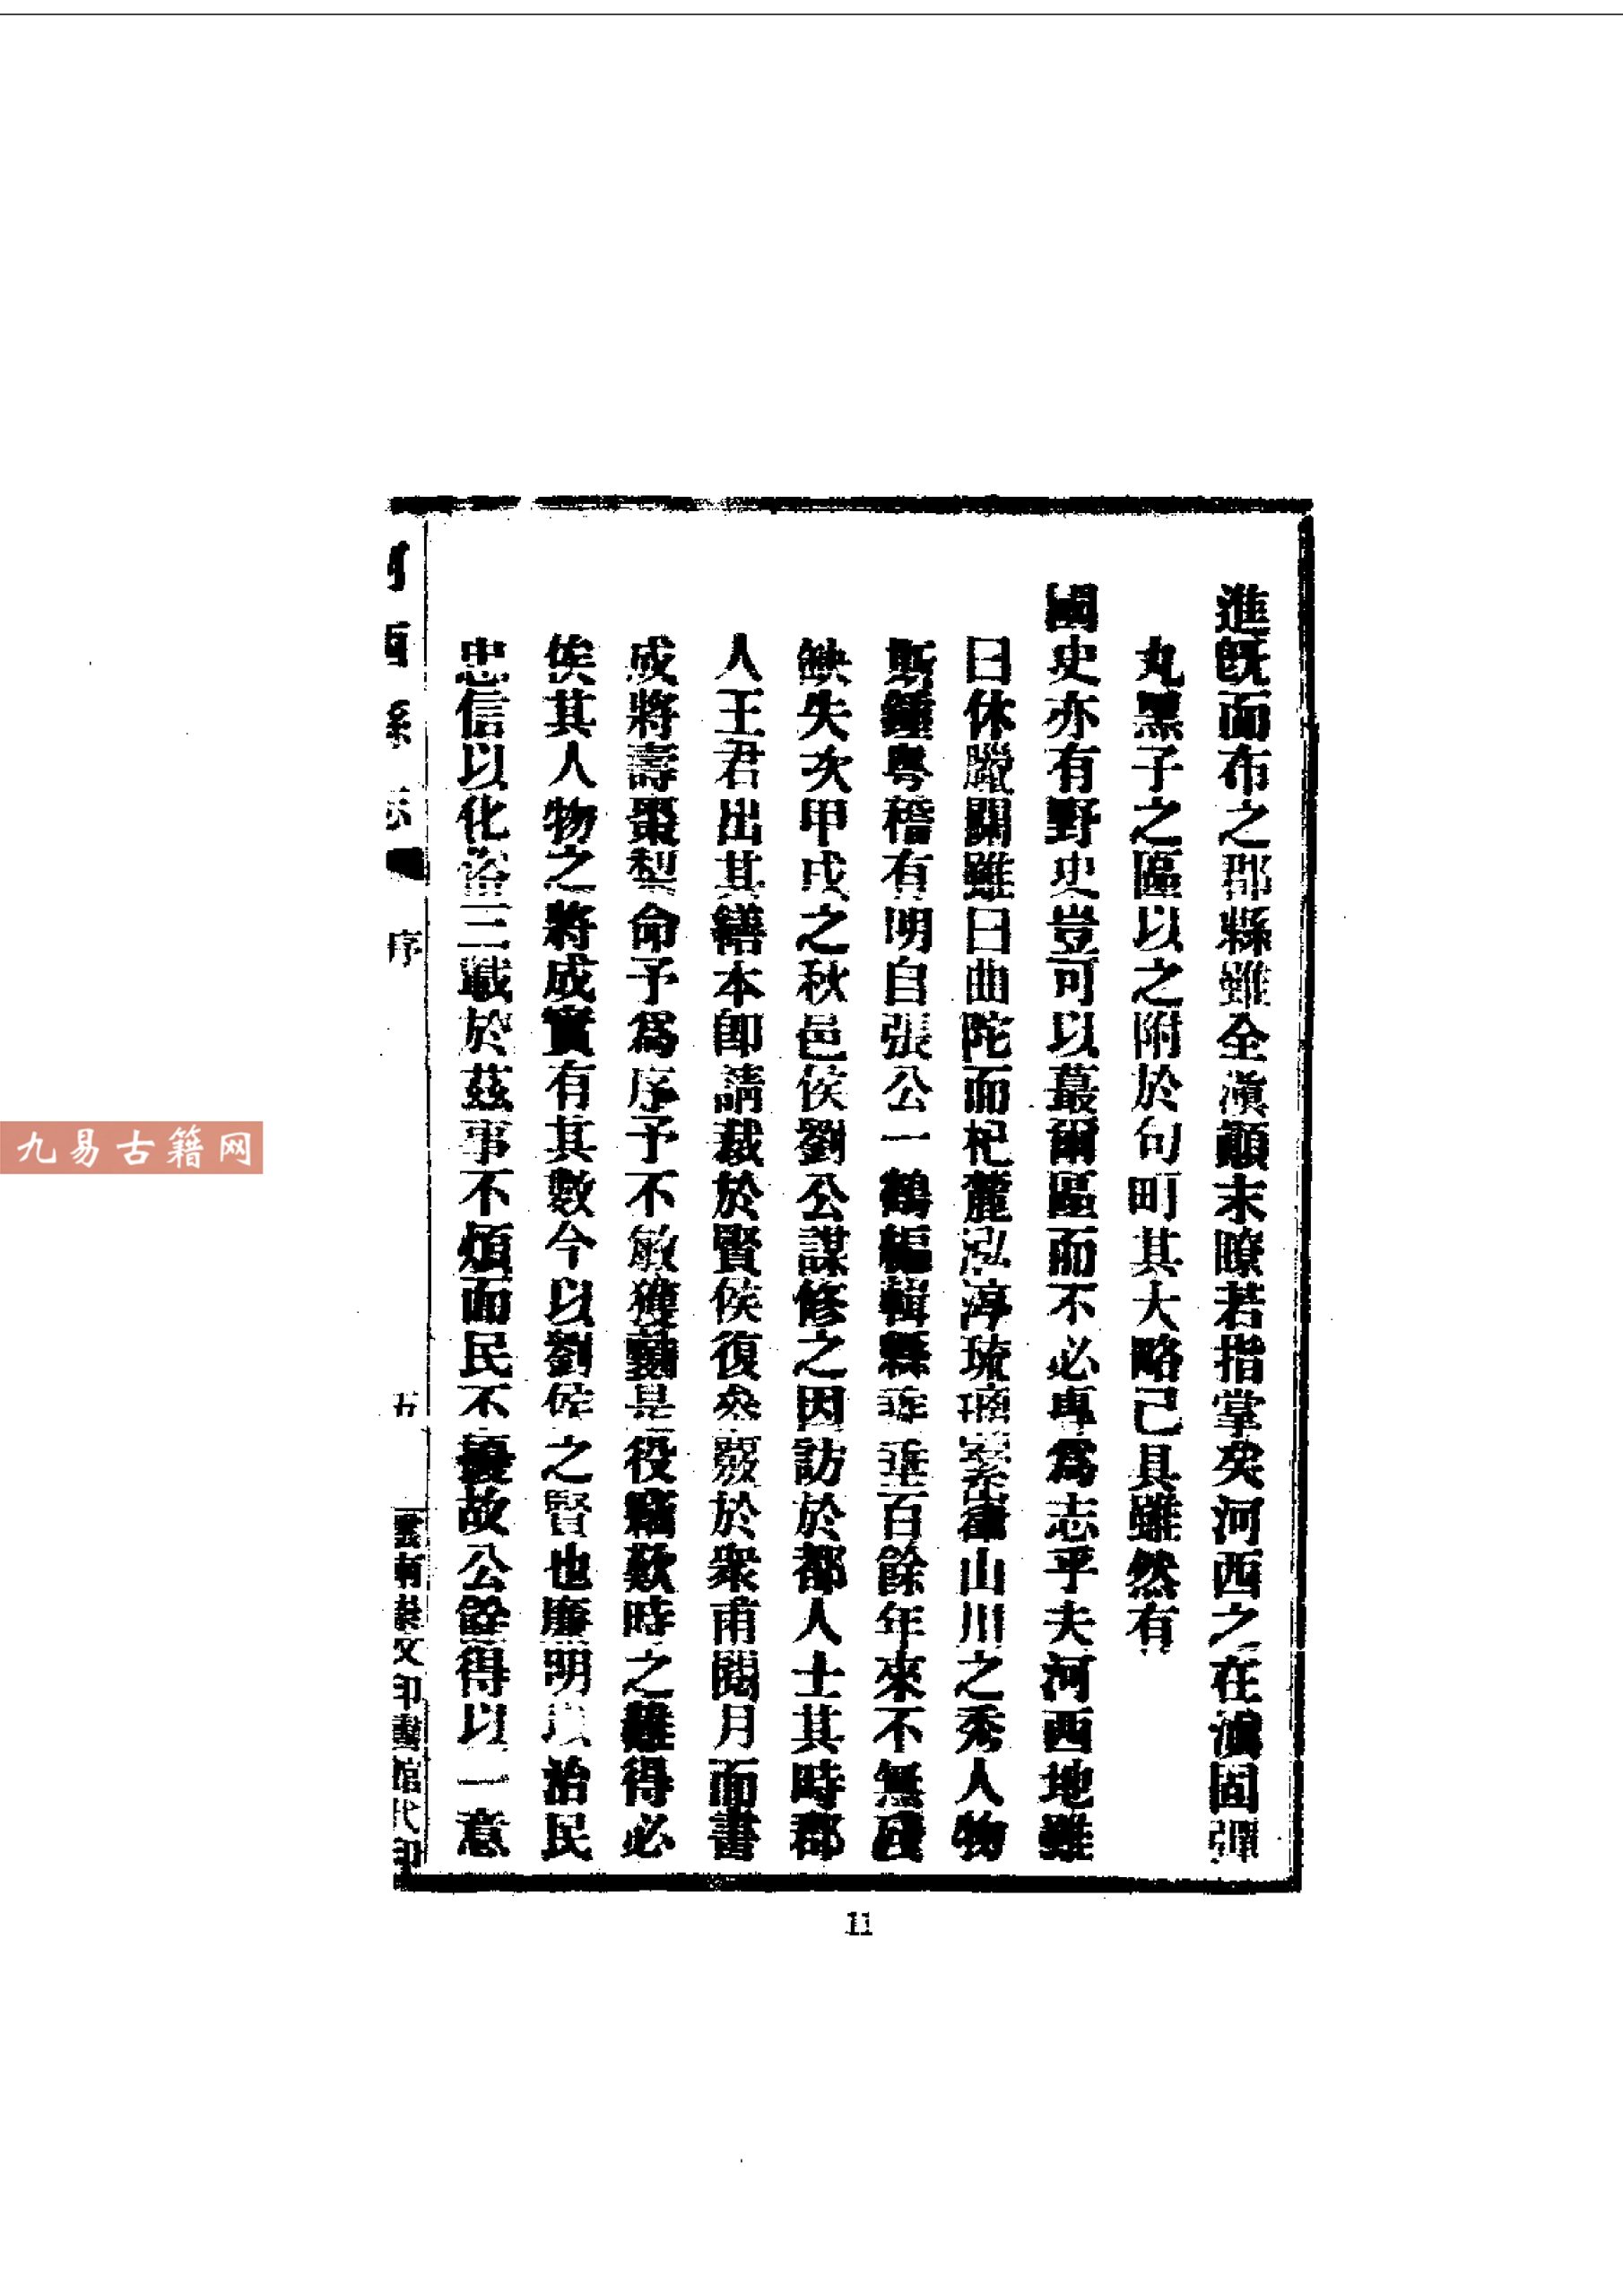 進既而布之郡縣雖全滇顚末瞭若指掌矣河西之在滇固彈
丸黑子之區以之附於句町其大略己具雖然有
國史亦有野史豈可以蕞爾區而不必專爲志乎夫河西地雖
曰休臘關雖曰曲陀而杞麓泓渟琉璃崒山川之秀人物
斯鍾粤稽有明自張公一鶴編輯縣乖垂百餘年來不無殘
缺失次甲戌之秋邑侯劉公謀修之因訪於都人士其時郡
人王君出其繕本卽請裁於賢侯復叅覈於衆甫閱月而書
成將壽棗梨命予爲序予不敏獲勷是役竊歎時之難得必
俟其人物之將成實有其數今以劉侯之賢也廉明以治民
忠信以化三載於茲事不煩而民不擾故公餘得以一意
河西縣志
序
五
雲南崇文印書館代印
11
九易古籍网